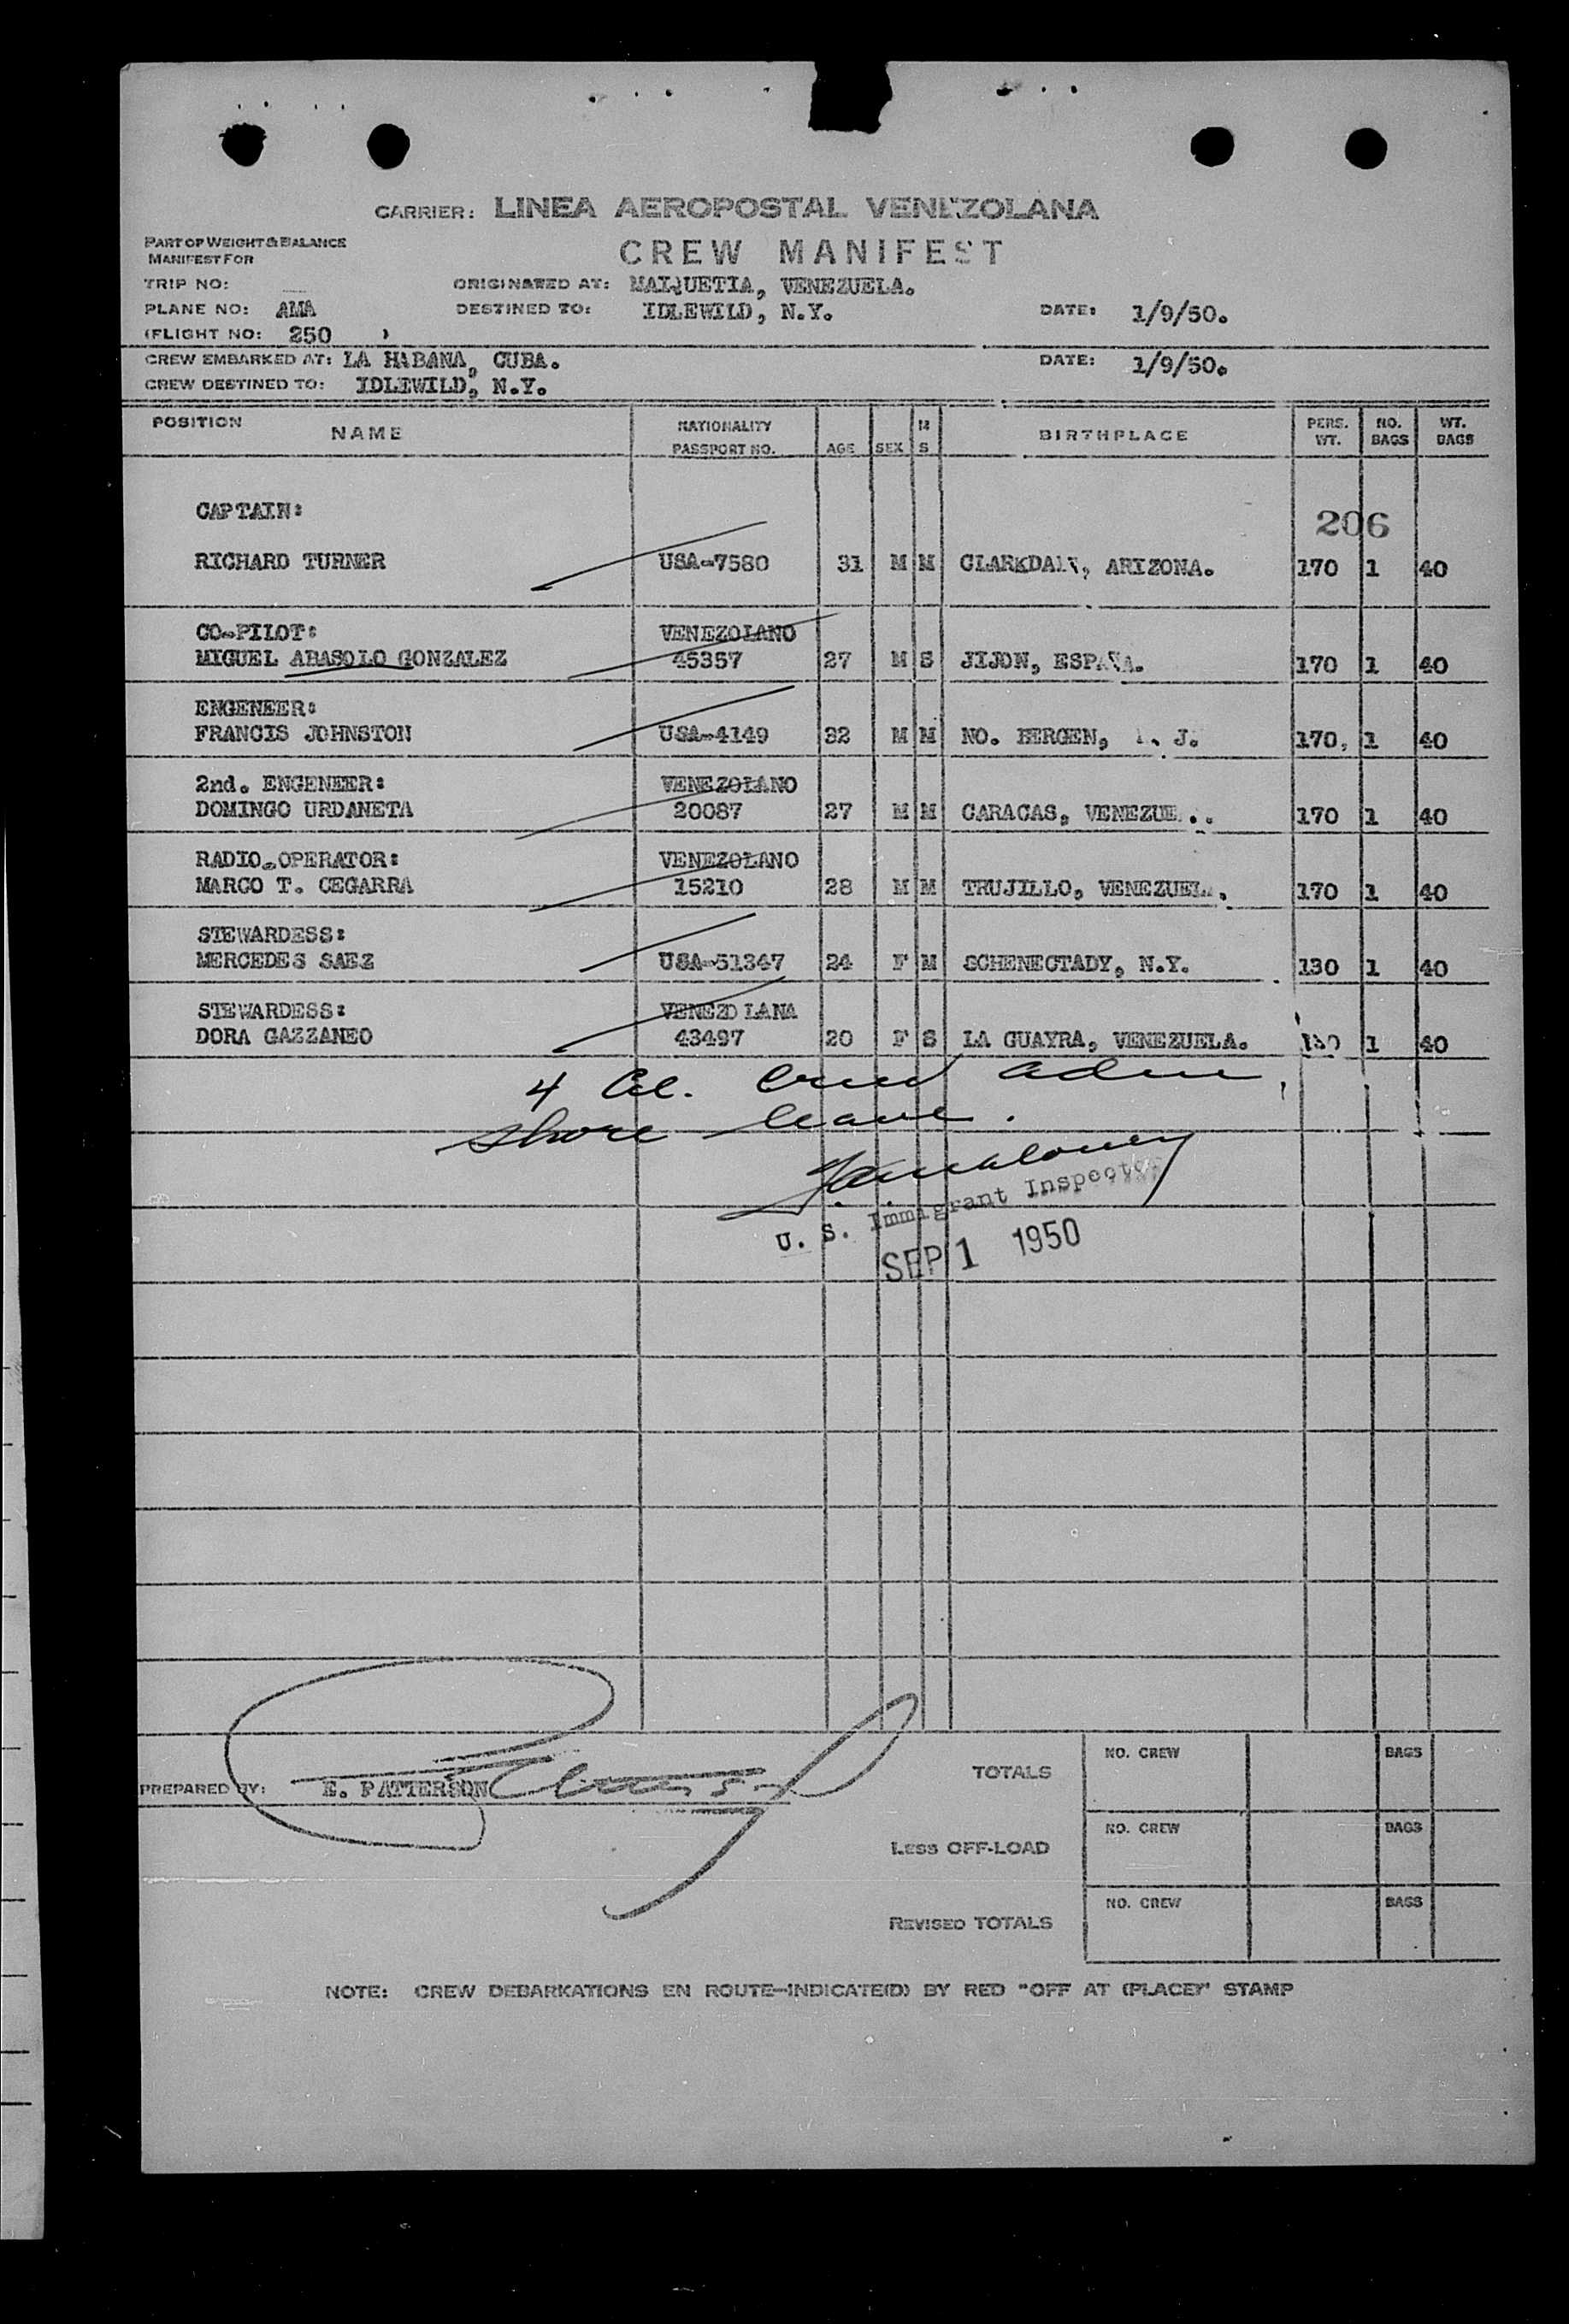 CARRIER: LINEA AEROPOSTAL VENEZOLANA
PART OF WEIGHT & BALANCE
MANIFEST FOR
CREW MANIFEST
TRIP NO: ORIGINATED AT: MAIQUETIA, VENEZUELA.
PLANE NO: AMA DESTINED TO: IDLEWILD, N.Y. DATE: 1/9/50.
(FLIGHT NO: 250 )
CREW EMBARKED AT: LA HABANA, CUBA. DATE: 1/9/50.
CREW DESTINED TO: IDLEWILD, N.Y.
POSITION NAME NATIONALITY PASSPORT NO. AGE SEX M S BIRTHPLACE PERS. WT. NO. BAGS WT. BAGS
CAPTAIN:
206
RICHARD TURNER USA-7580 31 M M CLARKDALE, ARIZONA. 170 1 40
CO-PILOT: VENEZOLANO
MIGUEL ABASOLO GONZALEZ 45357 27 M S JIJON, ESPAÑA. 170 1 40
ENGENEER:
FRANCIS JOHNSTON USA-4149 32 M M NO. BERGEN, N. J. 170, 1 40
2nd. ENGENEER: VENEZOLANO
DOMINGO URDANETA 20087 27 M M CARACAS, VENEZUE.. 170 1 40
RADIO-OPERATOR: VENEZOLANO
MARCO T. CEGARRA 15210 28 M M TRUJILLO, VENEZUELA. 170 1 40
STEWARDESS:
MERCEDES SAEZ USA-51347 24 F M SCHENECTADY, N.Y. 130 1 40
STEWARDESS: VENEZOLANA
DORA GAZZANEO 43497 20 F S LA GUAYRA, VENEZUELA. 130 1 40
4 al. crew adm
shore leave.
U. S. Immigrant Inspector
SEP 1 1950
PREPARED BY: E. PATTERSON
TOTALS NO. CREW BAGS
LESS OFF-LOAD NO. CREW BAGS
REVISED TOTALS NO. CREW BAGS
NOTE: CREW DEBARKATIONS EN ROUTE—INDICATE(D) BY RED "OFF AT (PLACE)" STAMP